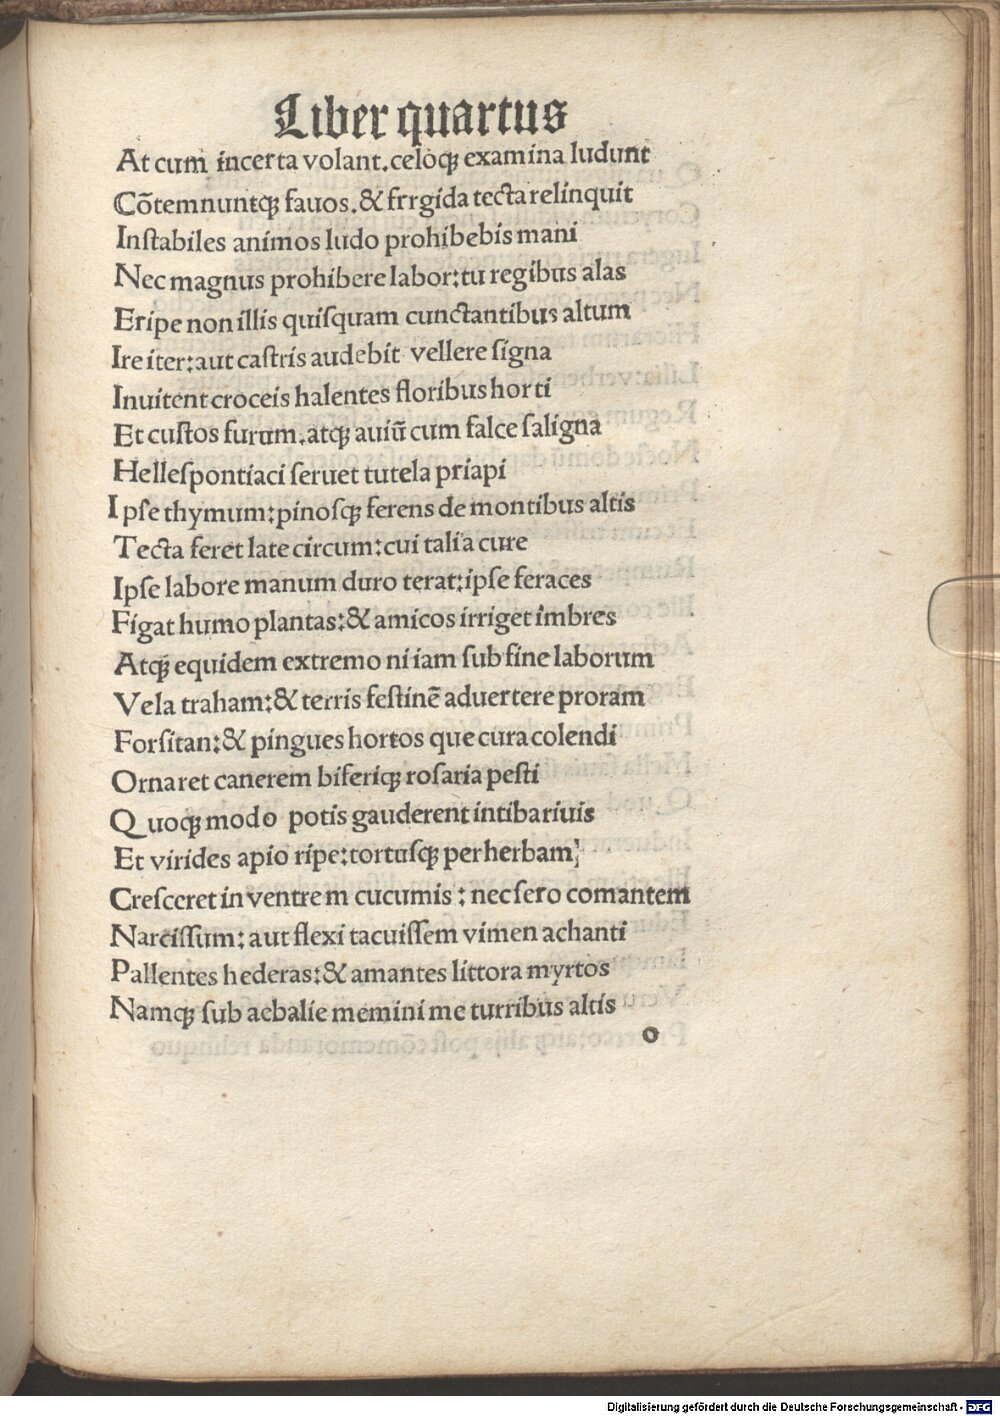 Liber quartus
At cum incerta volant.celoqꝫ examina ludunt
Cōtemnuntqꝫ fauos.&amp; frrgida tecta relinquit
Inſtabiles animos ludo prohibebis mani
Nec magnus prohibere labor:tu regibus alas
Eripe non illis quiſquam cunctantibus altum
Ire iter:aut caſtris audebit vellere ſigna
Inuitent croceis halentes floribus horti
Et cuſtos furum.atqꝫ auiū cum falce ſaligna
Helleſpontiaci ſeruet tutela priapi
Ipſe thymum:pinoſqꝫ ferens de montibus altis
Tecta feret late circum:cui talia cure
Ipſe labore manum duro terat:ipſe feraces
Figat humo plantas:&amp; amicos irriget imbres
Atqꝫ equidem extremo ni iam ſub fine laborum
Vela traham:&amp; terris feſtinē aduertere proram
Forſitan:&amp; pingues hortos que cura colendi
Ornaret canerem biferiqꝫ roſaria peſti
Quoqꝫ modo potis gauderent intiba riuis
Et virides apio ripe:tortuſqꝫ per herbam
Creſceret in ventrem cucumis : nec ſero comantem
Narciſſum: aut flexi tacuiſſem vimen achanti
Pallentes hederas:&amp; amantes littora myrtos
Namqꝫ ſub aebalie memini me turribus altis
o
Digitalisierung gefördert durch die Deutsche Forschungsgemeinschaft - DFG